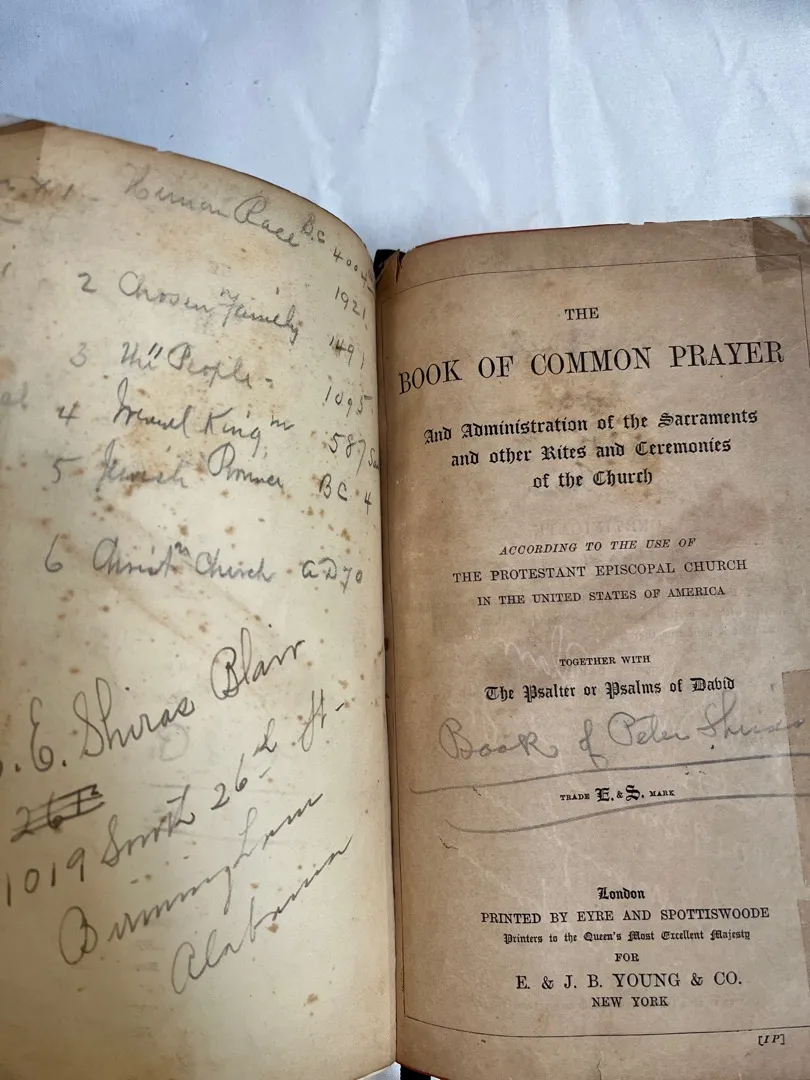 1 - Human Race B.C 4004
2 Chosen Family 1921
3 People - 1491
4 King 1095
5 Jewish 587
BC 4
6 Christn Church AD 70
E. Shiras Blair
1019 South 26th St-
Birmingham
Alabama
THE
BOOK OF COMMON PRAYER
And Administration of the Sacraments
and other Rites and Ceremonies
of the Church
ACCORDING TO THE USE OF
THE PROTESTANT EPISCOPAL CHURCH
IN THE UNITED STATES OF AMERICA
TOGETHER WITH
The Psalter or Psalms of David
Book of Peter Shiras
TRADE E. & S. MARK
London
PRINTED BY EYRE AND SPOTTISWOODE
Printers to the Queen's Most Excellent Majesty
FOR
E. & J. B. YOUNG & CO.
NEW YORK
[IP]